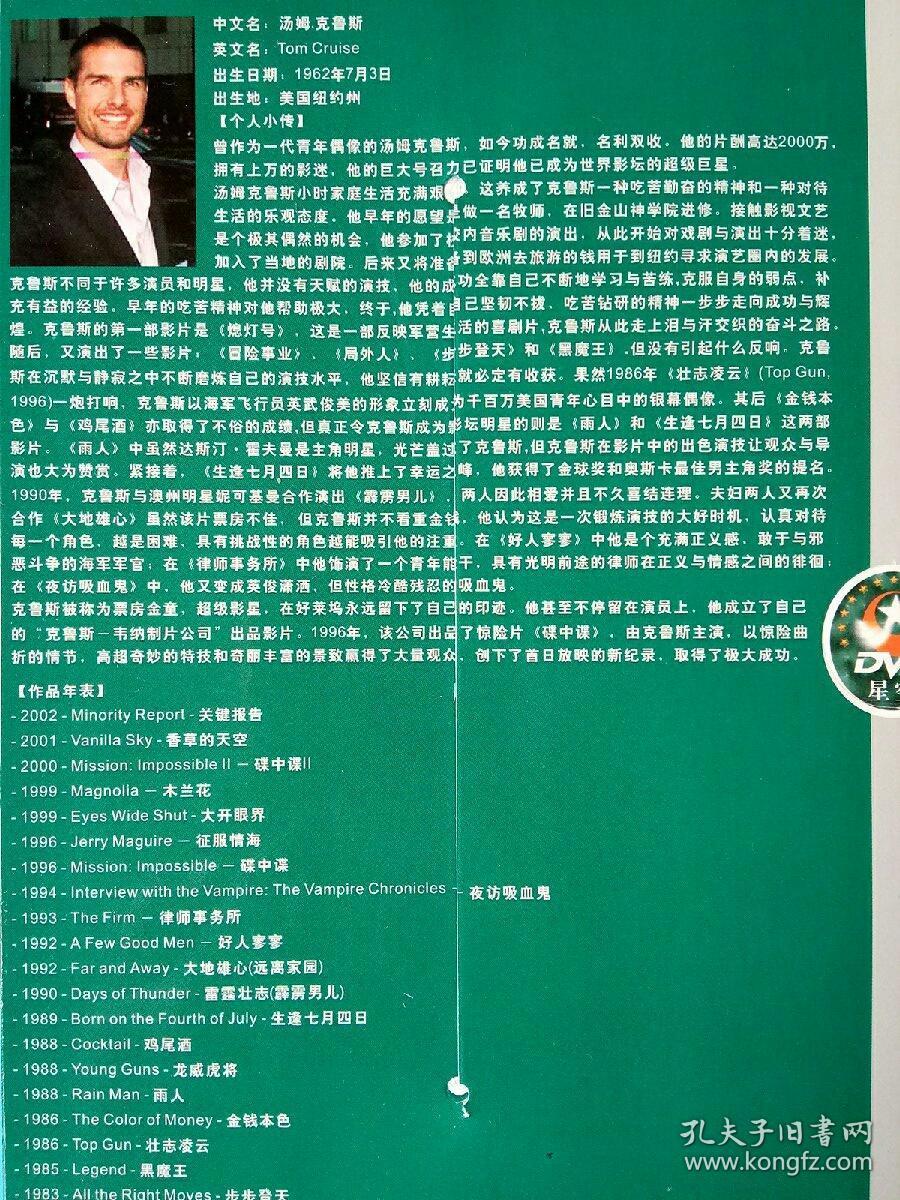 中文名：汤姆.克鲁斯
英文名：Tom Cruise
出生日期：1962年7月3日
出生地：美国纽约州
【个人小传】
曾作为一代青年偶像的汤姆克鲁斯，如今功成名就，名利双收。他的片酬高达2000万，
拥有上万的影迷，他的巨大号召力已证明他已成为世界影坛的超级巨星。
汤姆克鲁斯小时家庭生活充满艰 ，这养成了克鲁斯一种吃苦勤奋的精神和一种对待
生活的乐观态度。他早年的愿望是做一名牧师，在旧金山神学院进修。接触影视文艺
是个极其偶然的机会，他参加了校内音乐剧的演出，从此开始对戏剧与演出十分着迷，
加入了当地的剧院。后来又将准备到欧洲去旅游的钱用于到纽约寻求演艺圈内的发展。
克鲁斯不同于许多演员和明星，他并没有天赋的演技，他的成功全靠自己不断地学习与苦练,克服自身的弱点，补
充有益的经验。早年的吃苦精神对他帮助极大，终于,他凭着自己坚韧不拔，吃苦钻研的精神一步步走向成功与辉
煌。克鲁斯的第一部影片是《熄灯号》，这是一部反映军营生活的喜剧片,克鲁斯从此走上泪与汗交织的奋斗之路。
随后，又演出了一些影片：《冒险事业》、《局外人》、《步步登天》和《黑魔王》,但没有引起什么反响。克鲁
斯在沉默与静寂之中不断磨炼自己的演技水平，他坚信有耕耘就必定有收获。果然1986年《壮志凌云》(Top Gun,
1996)一炮打响，克鲁斯以海军飞行员英武俊美的形象立刻成为千百万美国青年心目中的银幕偶像。其后《金钱本
色》与《鸡尾酒》亦取得了不俗的成绩,但真正令克鲁斯成为影坛明星的则是《雨人》和《生逢七月四日》这两部
影片。《雨人》中虽然达斯汀·霍夫曼是主角明星，光芒盖过了克鲁斯,但克鲁斯在影片中的出色演技让观众与导
演也大为赞赏。紧接着，《生逢七月四日》将他推上了幸运之峰，他获得了金球奖和奥斯卡最佳男主角奖的提名。
1990年，克鲁斯与澳州明星妮可基曼合作演出《霹雳男儿》，两人因此相爱并且不久喜结连理。夫妇两人又再次
合作《大地雄心》虽然该片票房不佳，但克鲁斯并不看重金钱，他认为这是一次锻炼演技的大好时机，认真对待
每一个角色，越是困难，具有挑战性的角色越能吸引他的注重。在《好人寥寥》中他是个充满正义感，敢于与邪
恶斗争的海军军官；在《律师事务所》中他饰演了一个青年能干，具有光明前途的律师在正义与情感之间的徘徊；
在《夜访吸血鬼》中，他又变成英俊潇洒，但性格冷酷残忍的吸血鬼。
克鲁斯被称为票房金童，超级影星，在好莱坞永远留下了自己的印迹。他甚至不停留在演员上，他成立了自己
的“克鲁斯－韦纳制片公司”出品影片。1996年，该公司出品了惊险片《碟中谍》，由克鲁斯主演，以惊险曲
折的情节，高超奇妙的特技和奇丽丰富的景致赢得了大量观众，创下了首日放映的新纪录，取得了极大成功。
【作品年表】
- 2002 - Minority Report - 关键报告
- 2001 - Vanilla Sky - 香草的天空
- 2000 - Mission: Impossible II － 碟中谍II
- 1999 - Magnolia － 木兰花
- 1999 - Eyes Wide Shut - 大开眼界
- 1996 - Jerry Maguire － 征服情海
- 1996 - Mission: Impossible － 碟中谍
- 1994 - Interview with the Vampire: The Vampire Chronicles － 夜访吸血鬼
- 1993 - The Firm － 律师事务所
- 1992 - A Few Good Men － 好人寥寥
- 1992 - Far and Away - 大地雄心(远离家园)
- 1990 - Days of Thunder - 雷霆壮志(霹雳男儿)
- 1989 - Born on the Fourth of July - 生逢七月四日
- 1988 - Cocktail - 鸡尾酒
- 1988 - Young Guns - 龙威虎将
- 1988 - Rain Man - 雨人
- 1986 - The Color of Money - 金钱本色
- 1986 - Top Gun - 壮志凌云
- 1985 - Legend - 黑魔王
- 1983 - All the Right Moves - 步步登天
孔夫子旧书网
www.kongfz.com